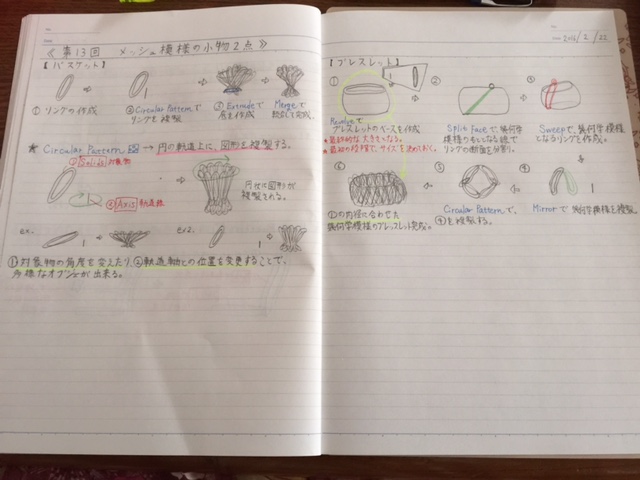 《第13回 メッシュ模様の小物2点》
【バスケット】
① リングの作成
② Circular Patternで
リングを複製
③ Extrudeで
底を作成
Mergeで
統合して完成。
★ Circular Pattern → 円の軌道上に、図形を複製する。
① Solids 対象物
② Axis 軌道線
円状に図形が
複製される。
ex.
ex2.
① 対象物の角度を変えたり、② 軌道軸との位置を変更することで、
多様なオブジェが出来る。
2016/2/22
【ブレスレット】
①
Revolveで
ブレスレットのベースを作成
★最終的な大きさとなる。
②
Split Faceで、幾何学
模様のもとになる線で
リングの断面を分割。
③
Sweepで、幾何学模様
となるリングを作成。
④
Mirrorで幾何学模様を複製。
⑤
Circular Patternで、
④を複製する。
⑥
①の内径に合わせた
幾何学模様のブレスレット完成。